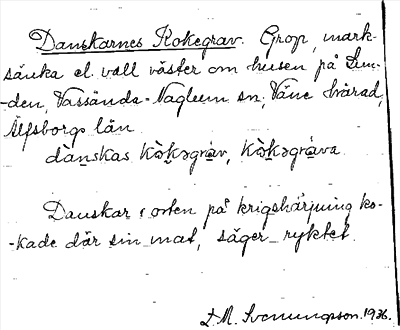 Danskarnes Kokegrav. Grop, mark-
sänka el. vall väster om husen på Lun-
-den, Vassända-Naglum sn; Väne härad,
Älfsborgs län.
dànskas kò̀kəgràv, kò̀kəgràva.
Danskar i orten på krigshärjning ko-
-kade där sin mat, säger ryktet.
L. M. Svenungsson. 1936.